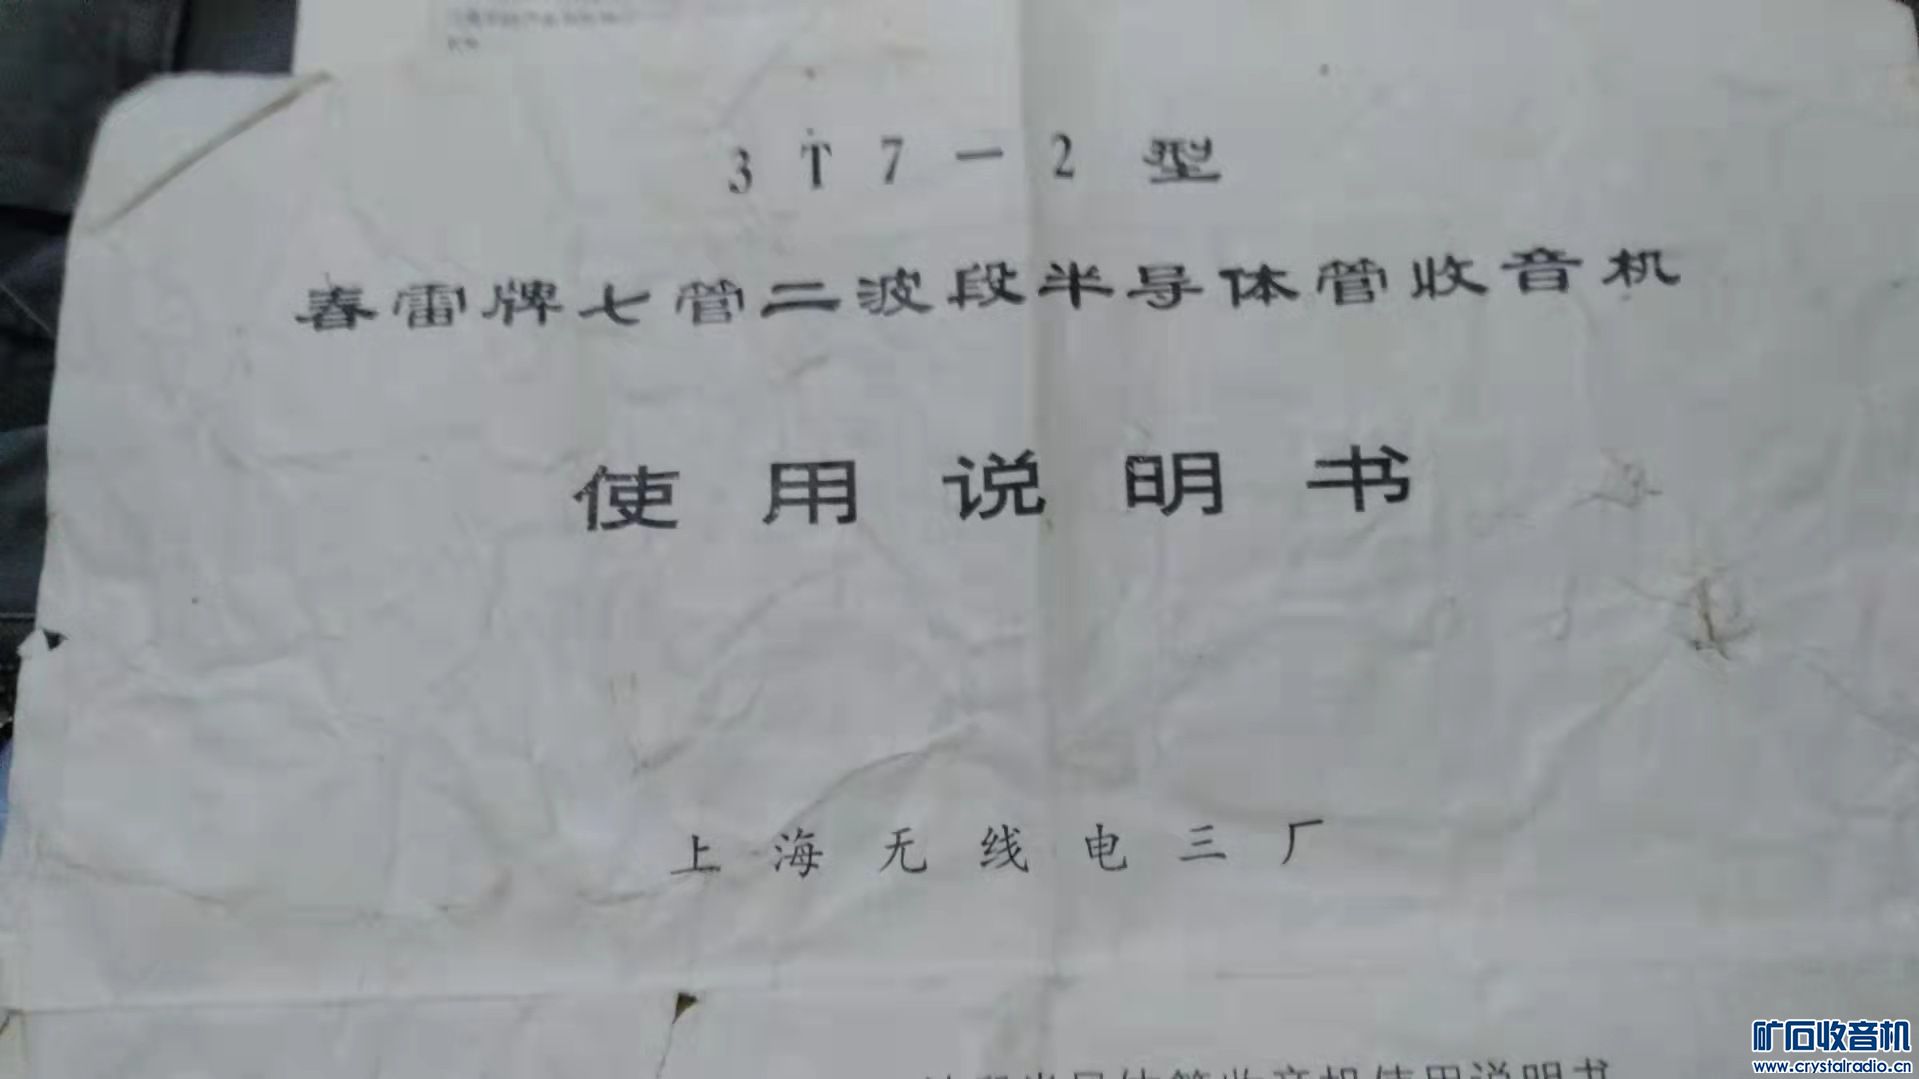 3T7-2型
春雷牌七管二波段半导体管收音机
使用说明书
上海无线电三厂
段半导体管收音机使用说明书
矿石收音机
www.crystalradio.cn